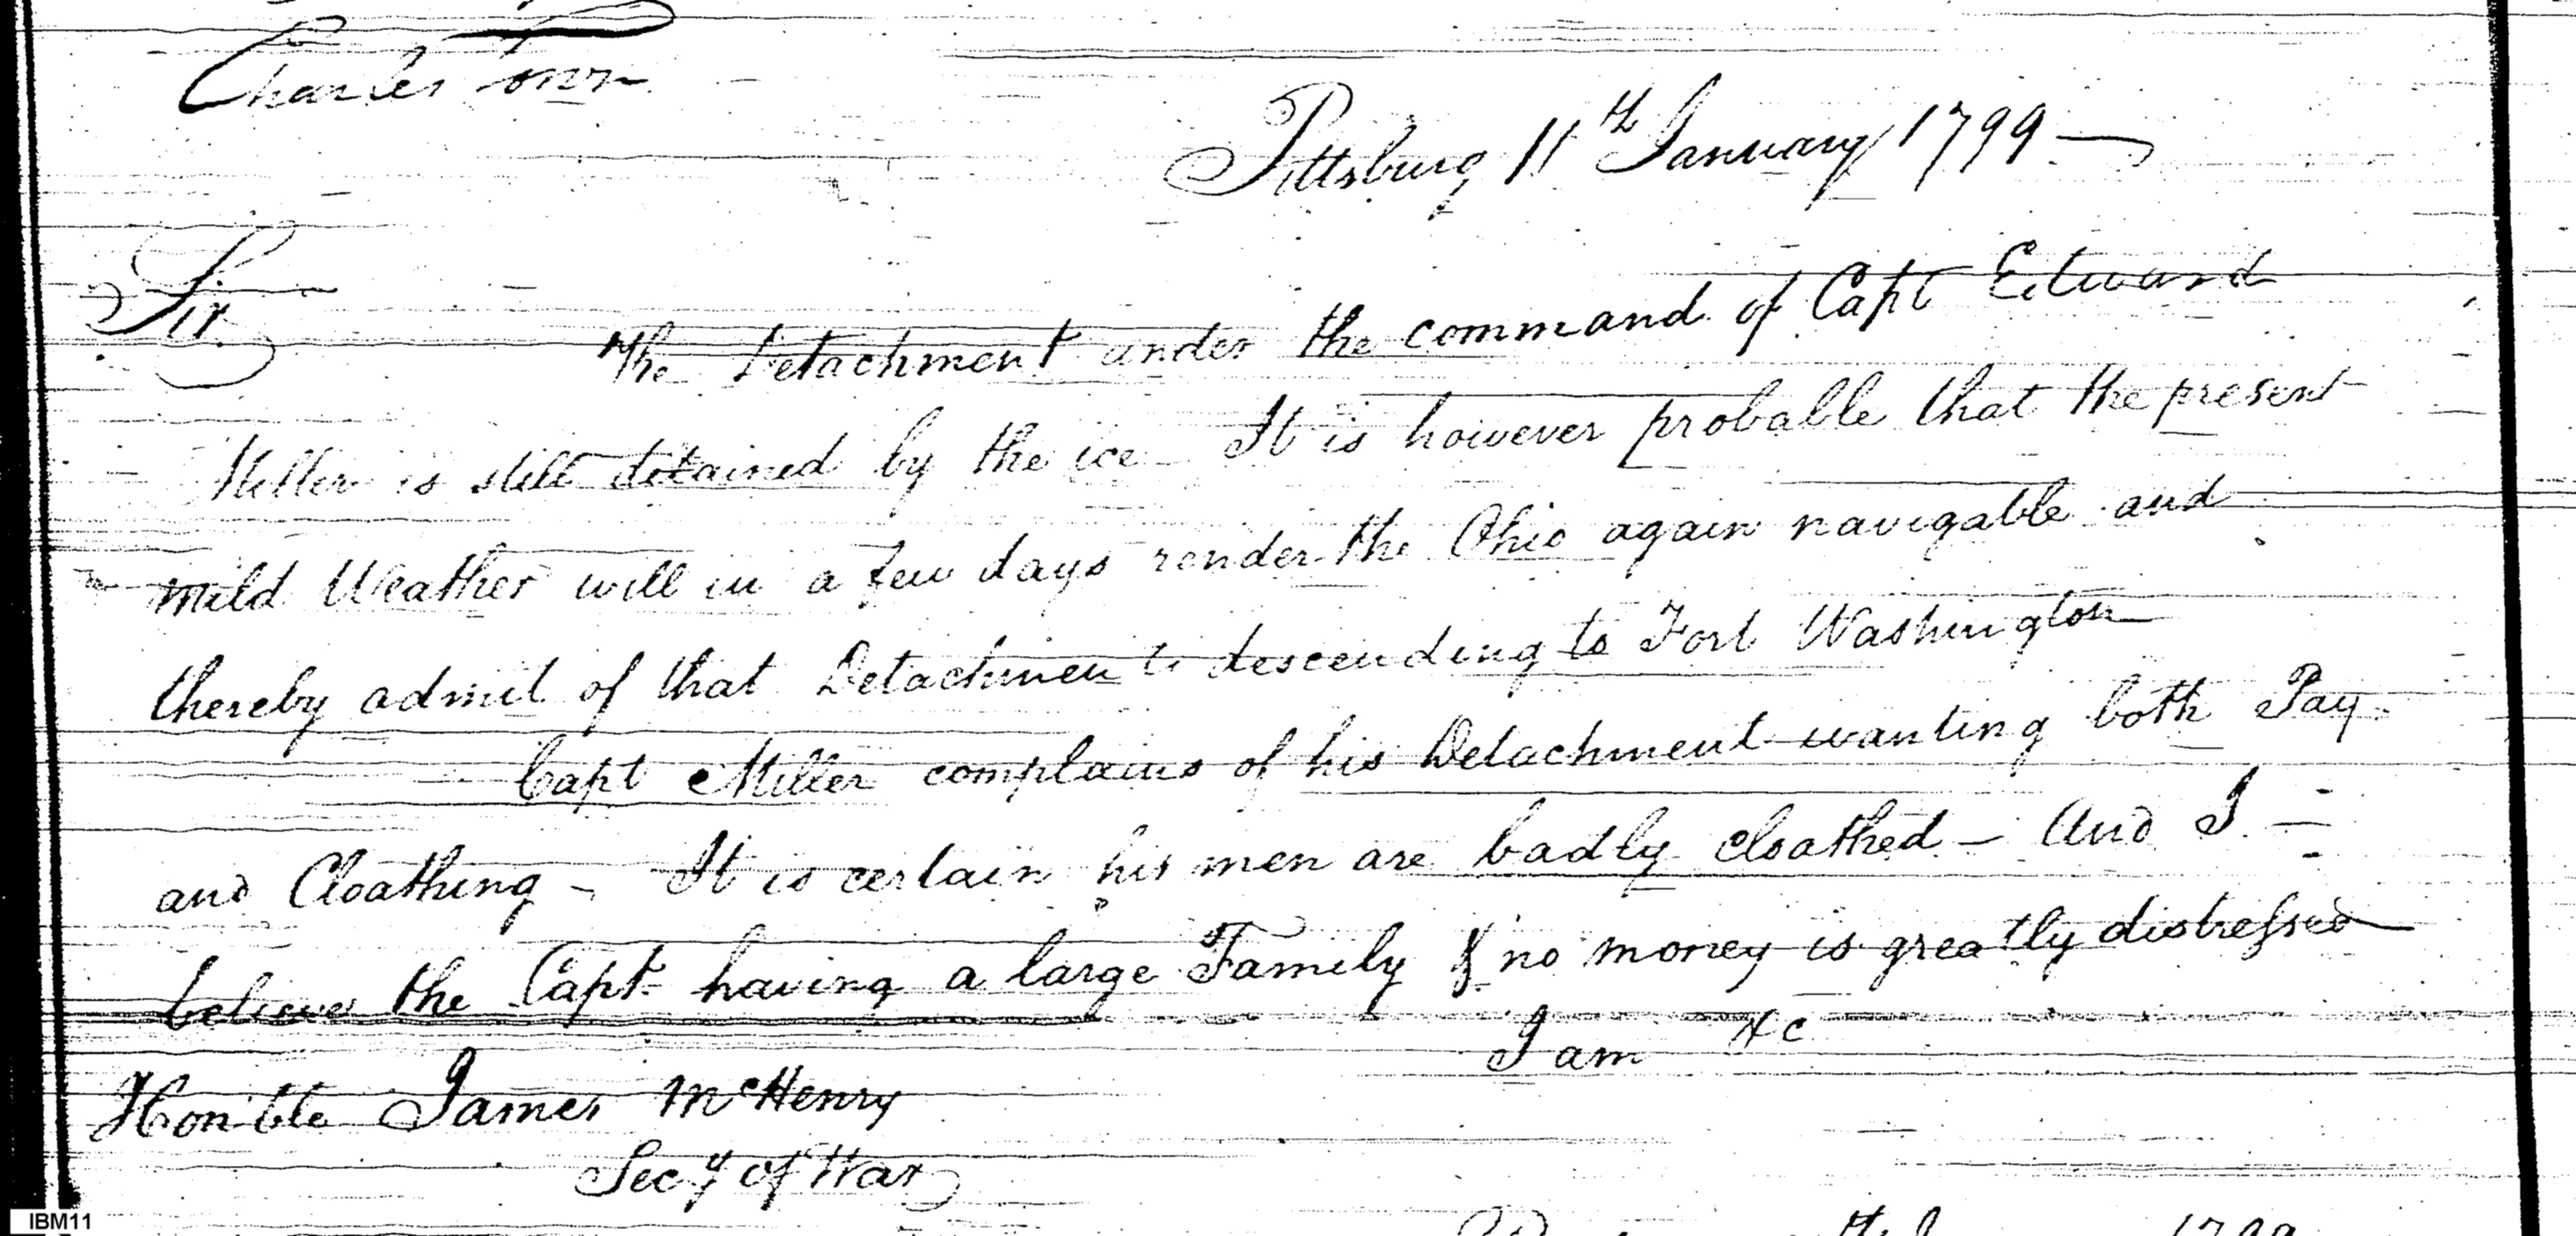 Charles Town
Pittsburg 11th January 1799
Sir
The Detachment under the command of Capt Edward
Miller is still detained by the ice - It is however probable that the present
mild Weather will in a few days render the Ohio again navigable and
thereby admit of that Detachment descending to Fort Washington
Capt Miller complains of his Detachment wanting both Pay
and Cloathing - It is certain his men are badly cloathed - And I
believe the Capt having a large Family & no money is greatly distressed
I am &c
Honble James McHenry
Secy of War
IBM11